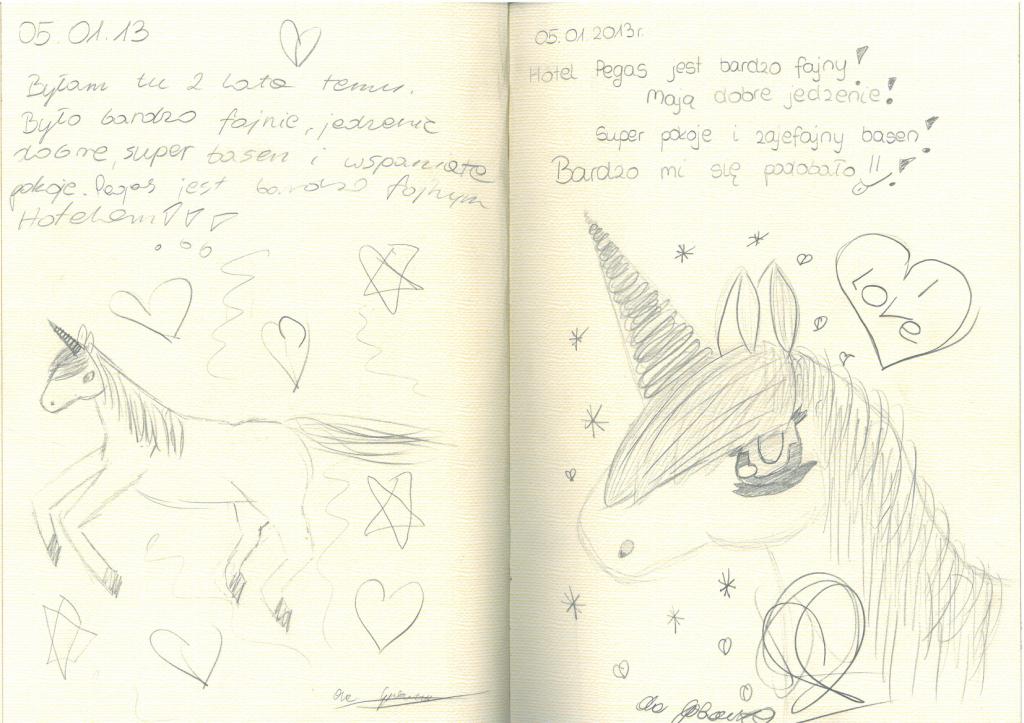 05.01.13
Byłam tu 2 lata temu.
Było bardzo fajnie, jedzenie
dobre, super basen i wspaniałe
pokoje. Pegas jest bardzo fajnym
Hotelem!!!
05.01.2013r.
Hotel Pegas jest bardzo fajny!
Mają dobre jedzenie!
Super pokoje i zajefajny basen!
Bardzo mi się podobało!!!
I
LOVE